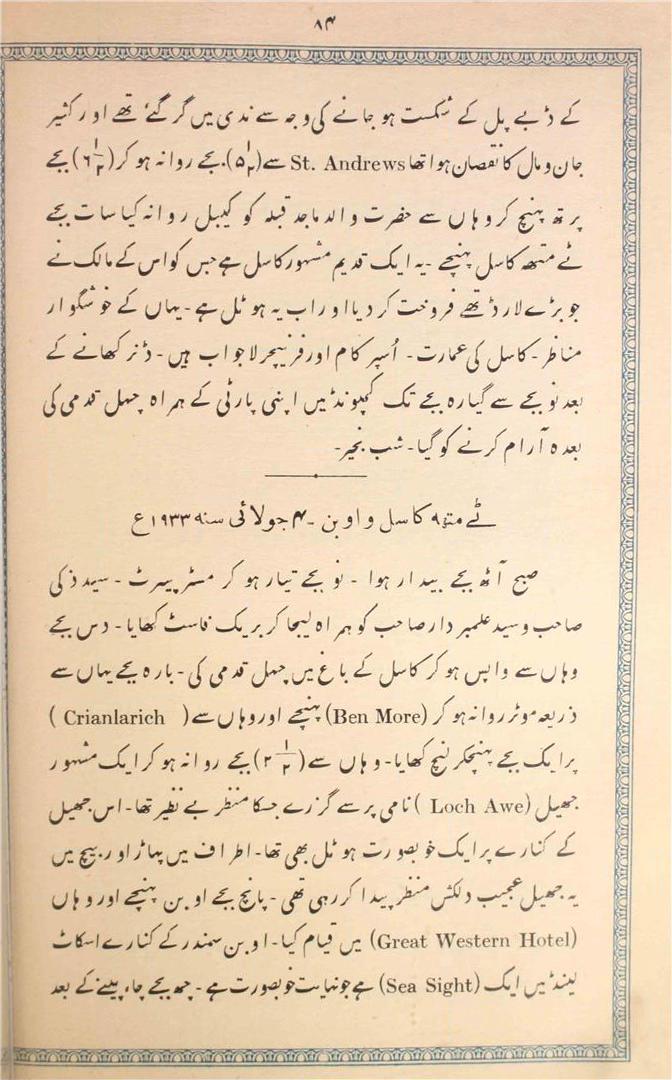 ۸۴
کے ڈبے پل کے شکست ہو جانے کی وجہ سے ندی میں گر گئے تھے اور کثیر
جان و مال کا نقصان ہوا تھا St. Andrews سے (۵½) بجے روانہ ہو کر (۶½) بجے
پرتھ پہنچ کر وہاں سے حضرت والد ماجد قبلہ کو کیبل روانہ کیا سات بجے
ٹے متھ کاسل پہنچے ۔ یہ ایک قدیم مشہور کاسل ہے جس کو اس کے مالک نے
جو بڑے لارڈ تھے فروخت کر دیا اور اب یہ ہوٹل ہے ۔ یہاں کے خوشگوار
مناظر ۔ کاسل کی عمارت ۔ اُسپر کام اور فرنیچر لاجواب ہیں ۔ ڈنر کھانے کے
بعد نو بجے سے گیارہ بجے تک کمپونڈ میں اپنی پارٹی کے ہمراہ چہل قدمی کی
بعدہ آرام کرنے کو گیا ۔ شب بخیر ۔
ٹے متھ کاسل و اوبن ۔ ۴ جولائی سنہ ۱۹۳۳ع
صبح آٹھ بجے بیدار ہوا ۔ نو بجے تیار ہو کر مسٹر پیرٹ ۔ سید ذکی
صاحب و سید علمبردار صاحب کو ہمراہ لیجا کر بریک فاسٹ کھایا ۔ دس بجے
وہاں سے واپس ہو کر کاسل کے باغ میں چہل قدمی کی ۔ بارہ بجے یہاں سے
ذریعہ موٹر روانہ ہو کر (Ben More) پہنچے اور وہاں سے (Crianlarich)
پر ایک بجے پہنچکر لنچ کھایا ۔ وہاں سے (۲½) بجے روانہ ہو کر ایک مشہور
جھیل (Loch Awe) نامی پر سے گزرے جسکا منظر بے نظیر تھا ۔ اس جھیل
کے کنارے پر ایک خوبصورت ہوٹل بھی تھا ۔ اطراف میں پہاڑ اور بیچ میں
یہ جھیل عجیب دلکش منظر پیدا کر رہی تھی ۔ پانچ بجے اوبن پہنچے اور وہاں
(Great Western Hotel) میں قیام کیا ۔ اوبن سمندر کے کنارے اسکاٹ
لینڈ میں ایک (Sea Sight) ہے جو نہایت خوبصورت ہے ۔ چھ بجے چاء پینے کے بعد